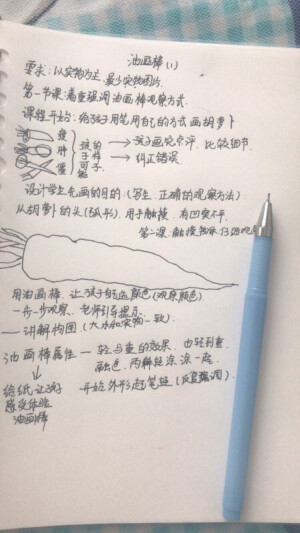 油画棒(1)
要求：以实物为主，最少实物图片
第一节课：着重强调油画棒观察方式
课程开始：给孩子用笔用自己的方式画胡萝卜
孩子画完点评，比较细节
孩子可能
纠正错误
设计学生先画的目的（写生，正确的观察方法）
从胡萝卜的头（弧形），用手触摸，有凹突不平
第二课：触摸物体仔细观察
用油画棒，让孩子自己选颜色（观察颜色）
一步一步观察，老师引导提示
讲解构图（大小和实物一致）
油画棒属性 — 轻与重的效果，也轻到重
融色，两种轻涂涂一起
给纸让孩子
感受体验
油画棒
开始外形起笔短（反复强调）